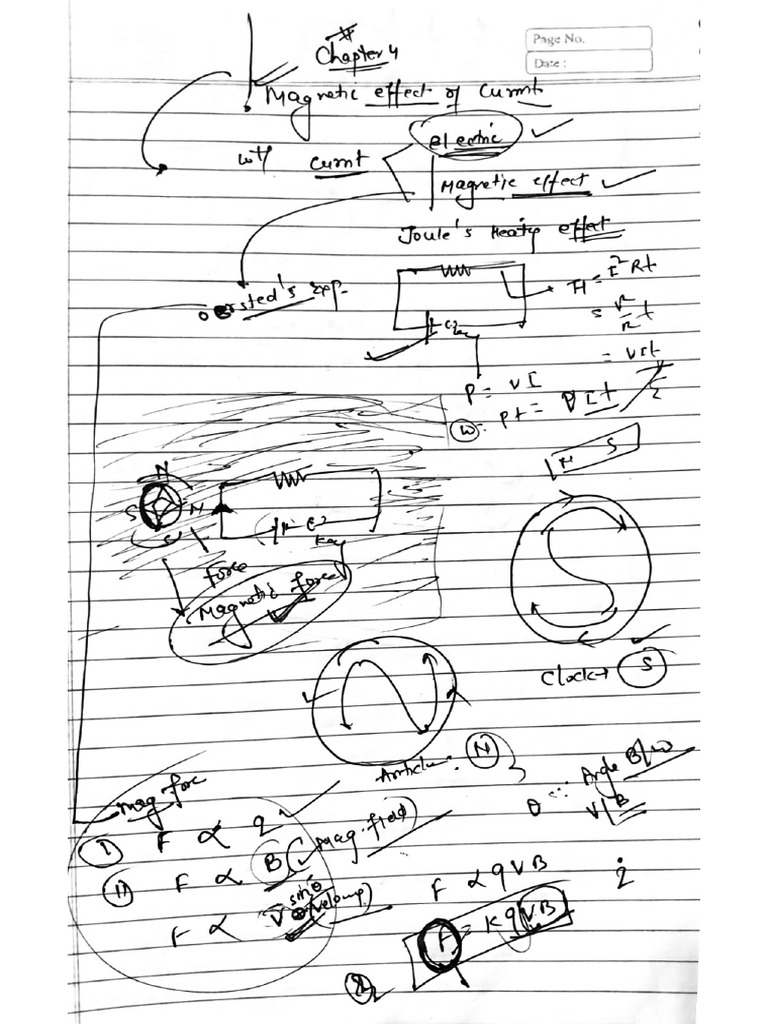 Page No.
Date :
Chapter 4
Magnetic effect of Currnt
Currnt
electric
Magnetic effect
Joule's Heatig effect
orsted's exp.
H = I² Rt
= V²/R t
= VIt
P = VI
W = Pt = VIt
N S
N
S N
S
Key
force
Magnetic force
S
Clock→ S
N
Anticlock. N
mag forc
θ ∵ Angle B/w
V/B
I F ∝ q
II F ∝ B (Mag. field)
F ∝ V sinθ (velocity)
F ∝ qVB
F = KqVB